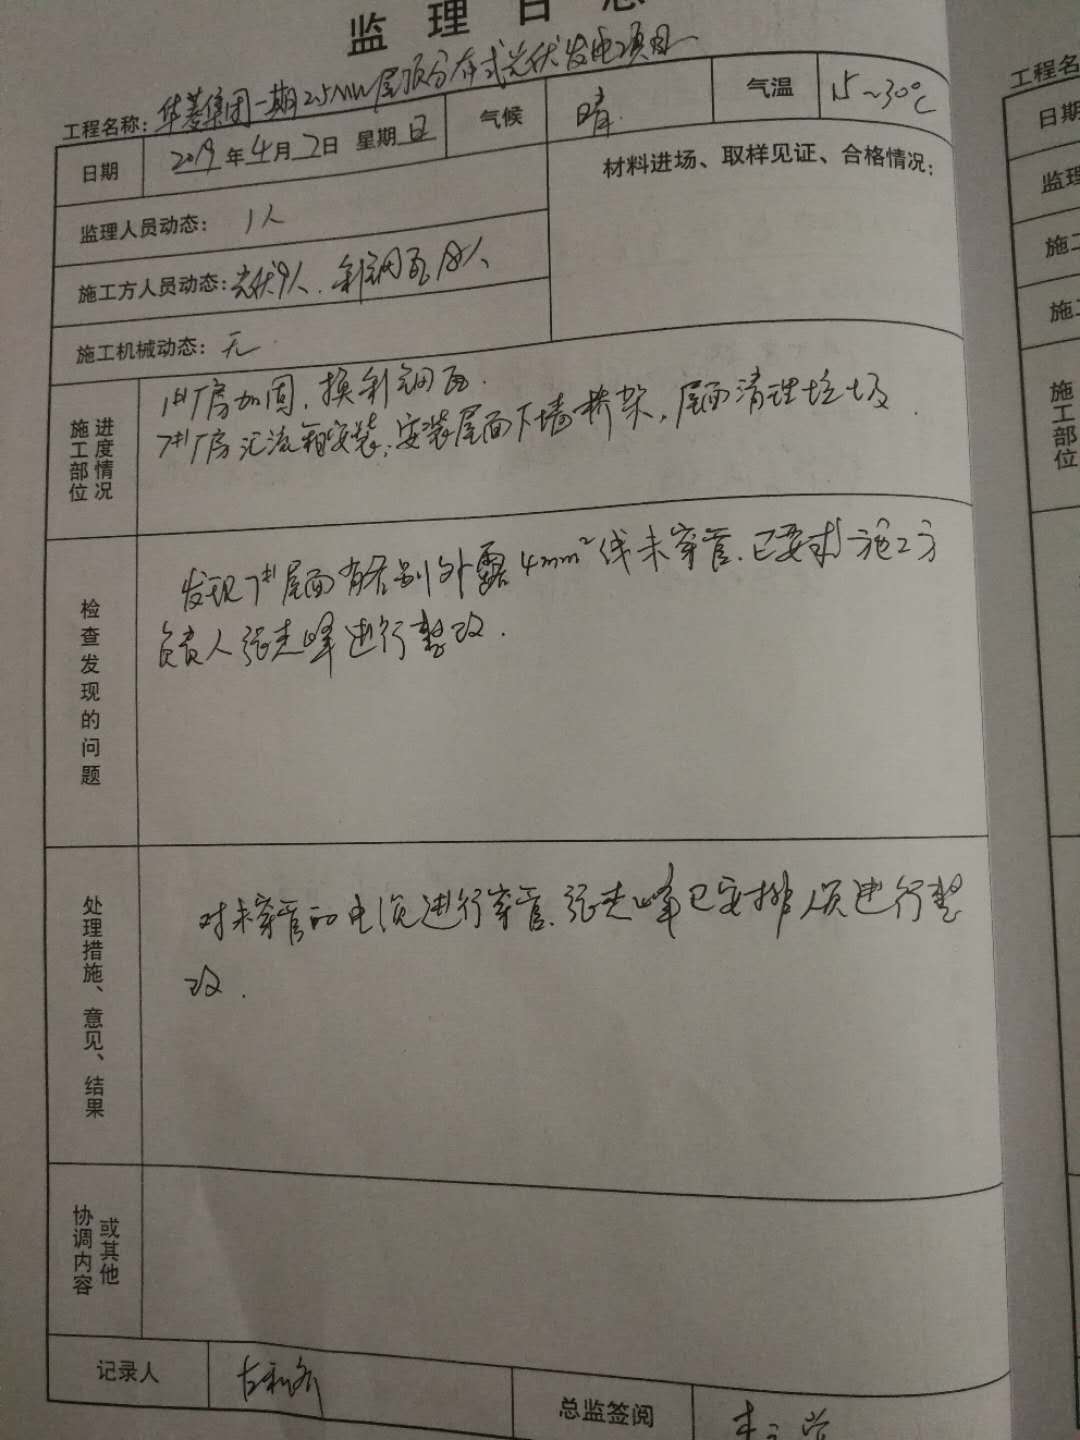 监理日志
工程名称：华菱集团一期2.5MW屋顶分布式光伏发电项目
日期 2019年4月2日 星期日 气候 晴 气温 15~30℃
监理人员动态： 1人
材料进场、取样见证、合格情况：
施工方人员动态：光伏9人．彩钢瓦8人
施工机械动态：无
施工部位进度情况
1#厂房加固．换彩钢瓦．
7#厂房汇流箱安装；安装屋面下墙桥架，屋面清理垃圾．
检查发现的问题
发现7#屋面有个别外露4mm²线未穿管．已要求施工方
负责人张志峰进行整改．
处理措施、意见、结果
对未穿管的电缆进行穿管．张志峰已安排人员进行整
改．
协调内容或其他
记录人
总监签阅
工程名
日期
监理
施工
施工
施工部位